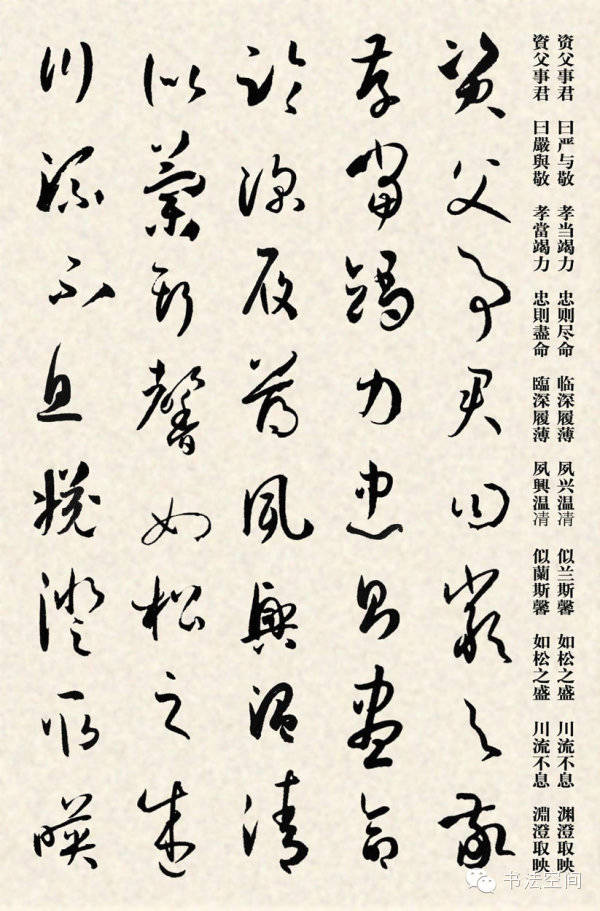 资父事君 曰严与敬 孝当竭力 忠则尽命 临深履薄 夙兴温凊 似兰斯馨 如松之盛 川流不息 渊澄取映
資父事君 曰嚴與敬 孝當竭力 忠則盡命 臨深履薄 夙興温凊 似蘭斯馨 如松之盛 川流不息 淵澄取映
資父事君曰嚴與敬
孝當竭力忠則盡命
臨深履薄夙興温清
似蘭斯馨如松之盛
川流不息淵澄取暎
书法空间